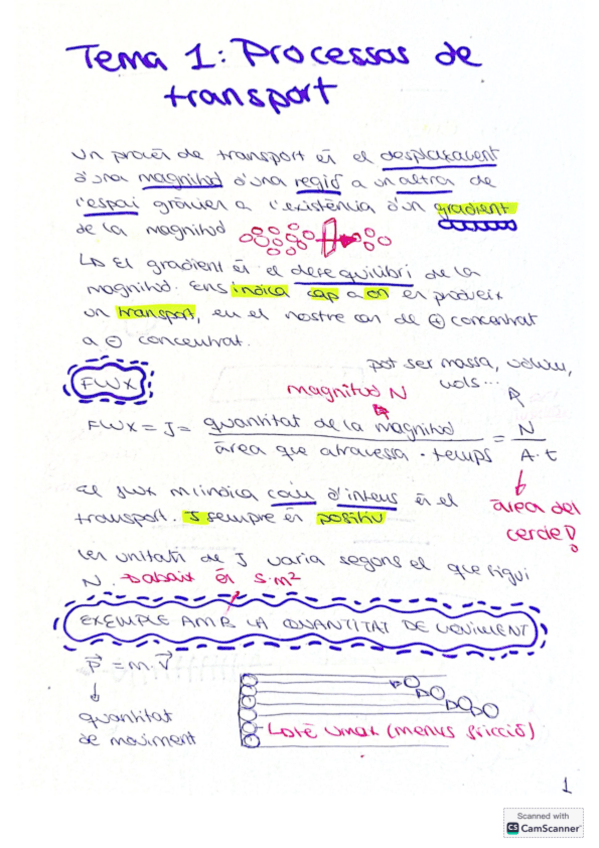 Tema 1: Processos de
transport
un procés de transport és el desplaçament
d'una magnitud d'una regió a un altra de
l'espai gràcies a l'existència d'un gradient
de la magnitud
↳ El gradient és el desequilibri de la
magnitud. Ens indica cap a on es produeix
un transport, en el nostre cas de ⊕ concentrat
a ⊖ concentrat.
FLUX
pot ser massa, volum,
mols...
magnitud N
FLUX = J = quantitat de la magnitud / àrea que atravessa · temps = N / A·t
El flux m'indica com d'intens és el
transport. J sempre és positiu
àrea del
cercle!
Les unitats de J varia segons el que sigui
N. → abaix és s·m²
EXEMPLE AMB LA QUANTITAT DE MOVIMENT
p⃗ = m·v⃗
quantitat
de moviment
↳ té vmax (menys fricció)
1
Scanned with
CS CamScanner